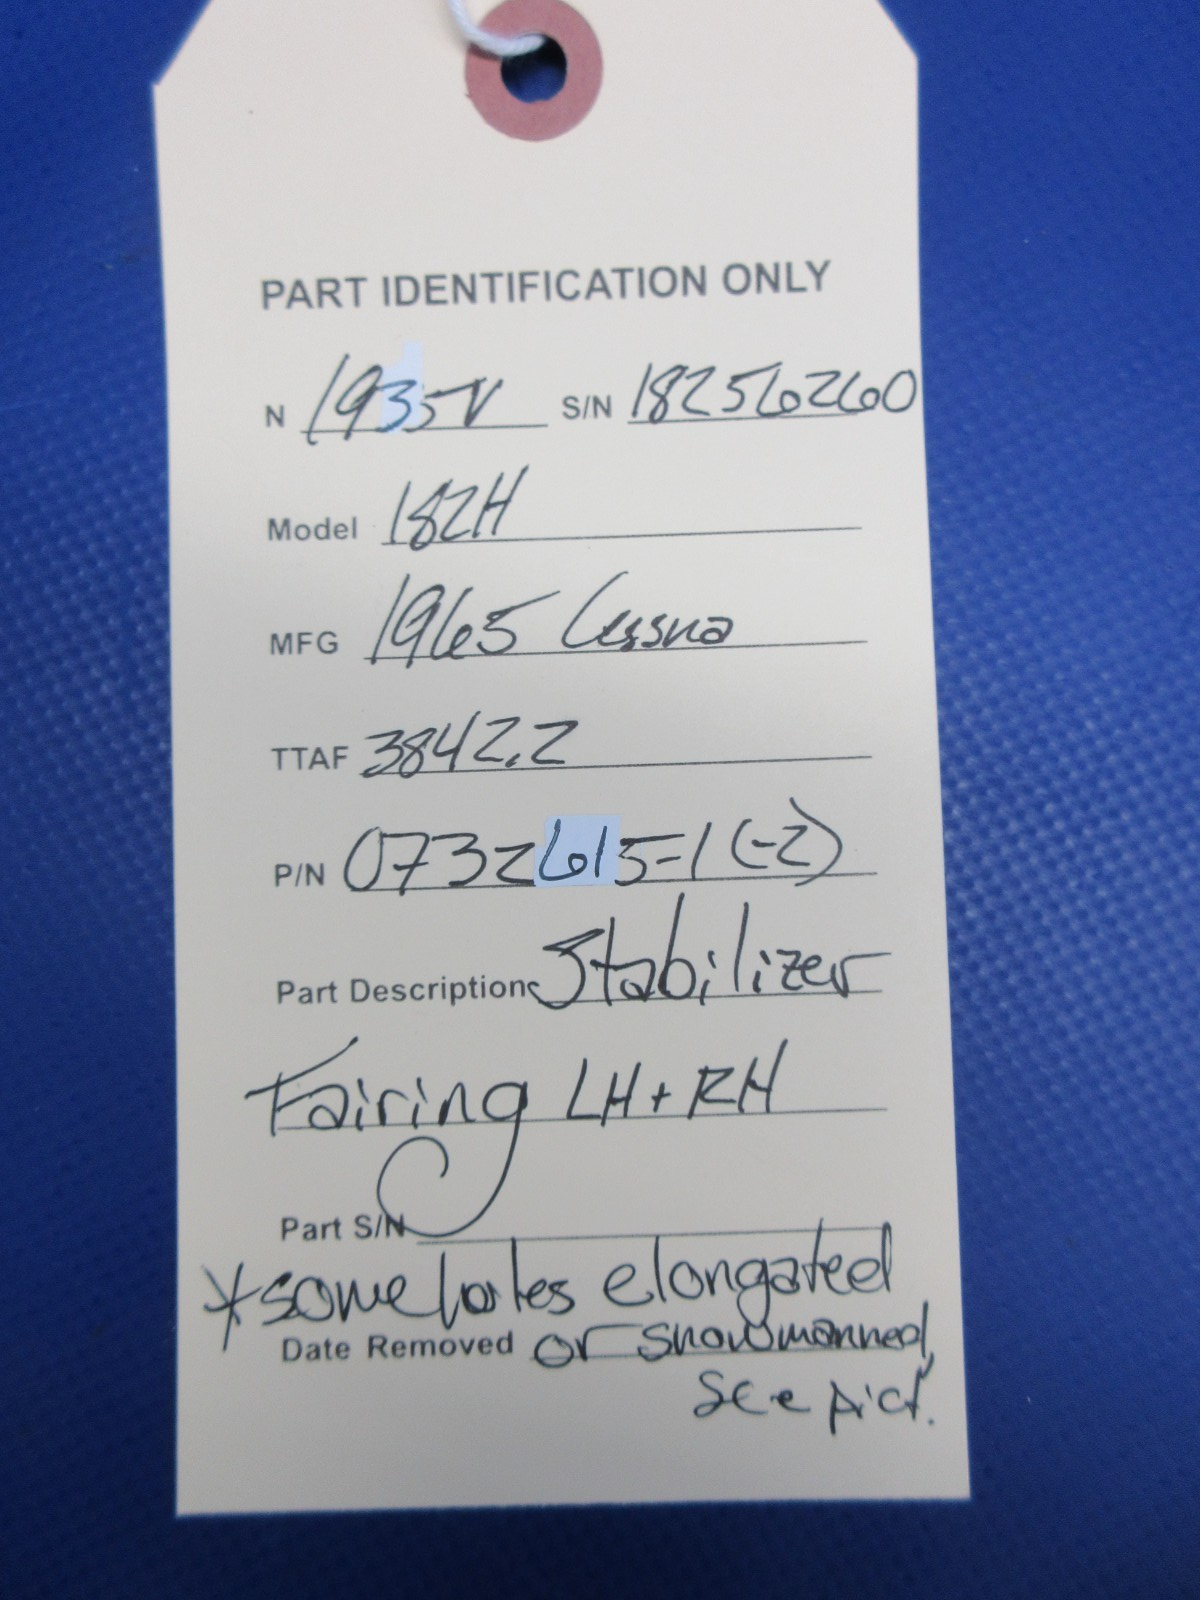 PART IDENTIFICATION ONLY
N 1935V S/N 18256260
Model 182H
MFG 1965 Cessna
TTAF 3842.2
P/N 0732615-1 (-2)
Part Description Stabilizer
Fairing LH + RH
Part S/N
*some holes elongated
Date Removed or snowmanned,
see pict.